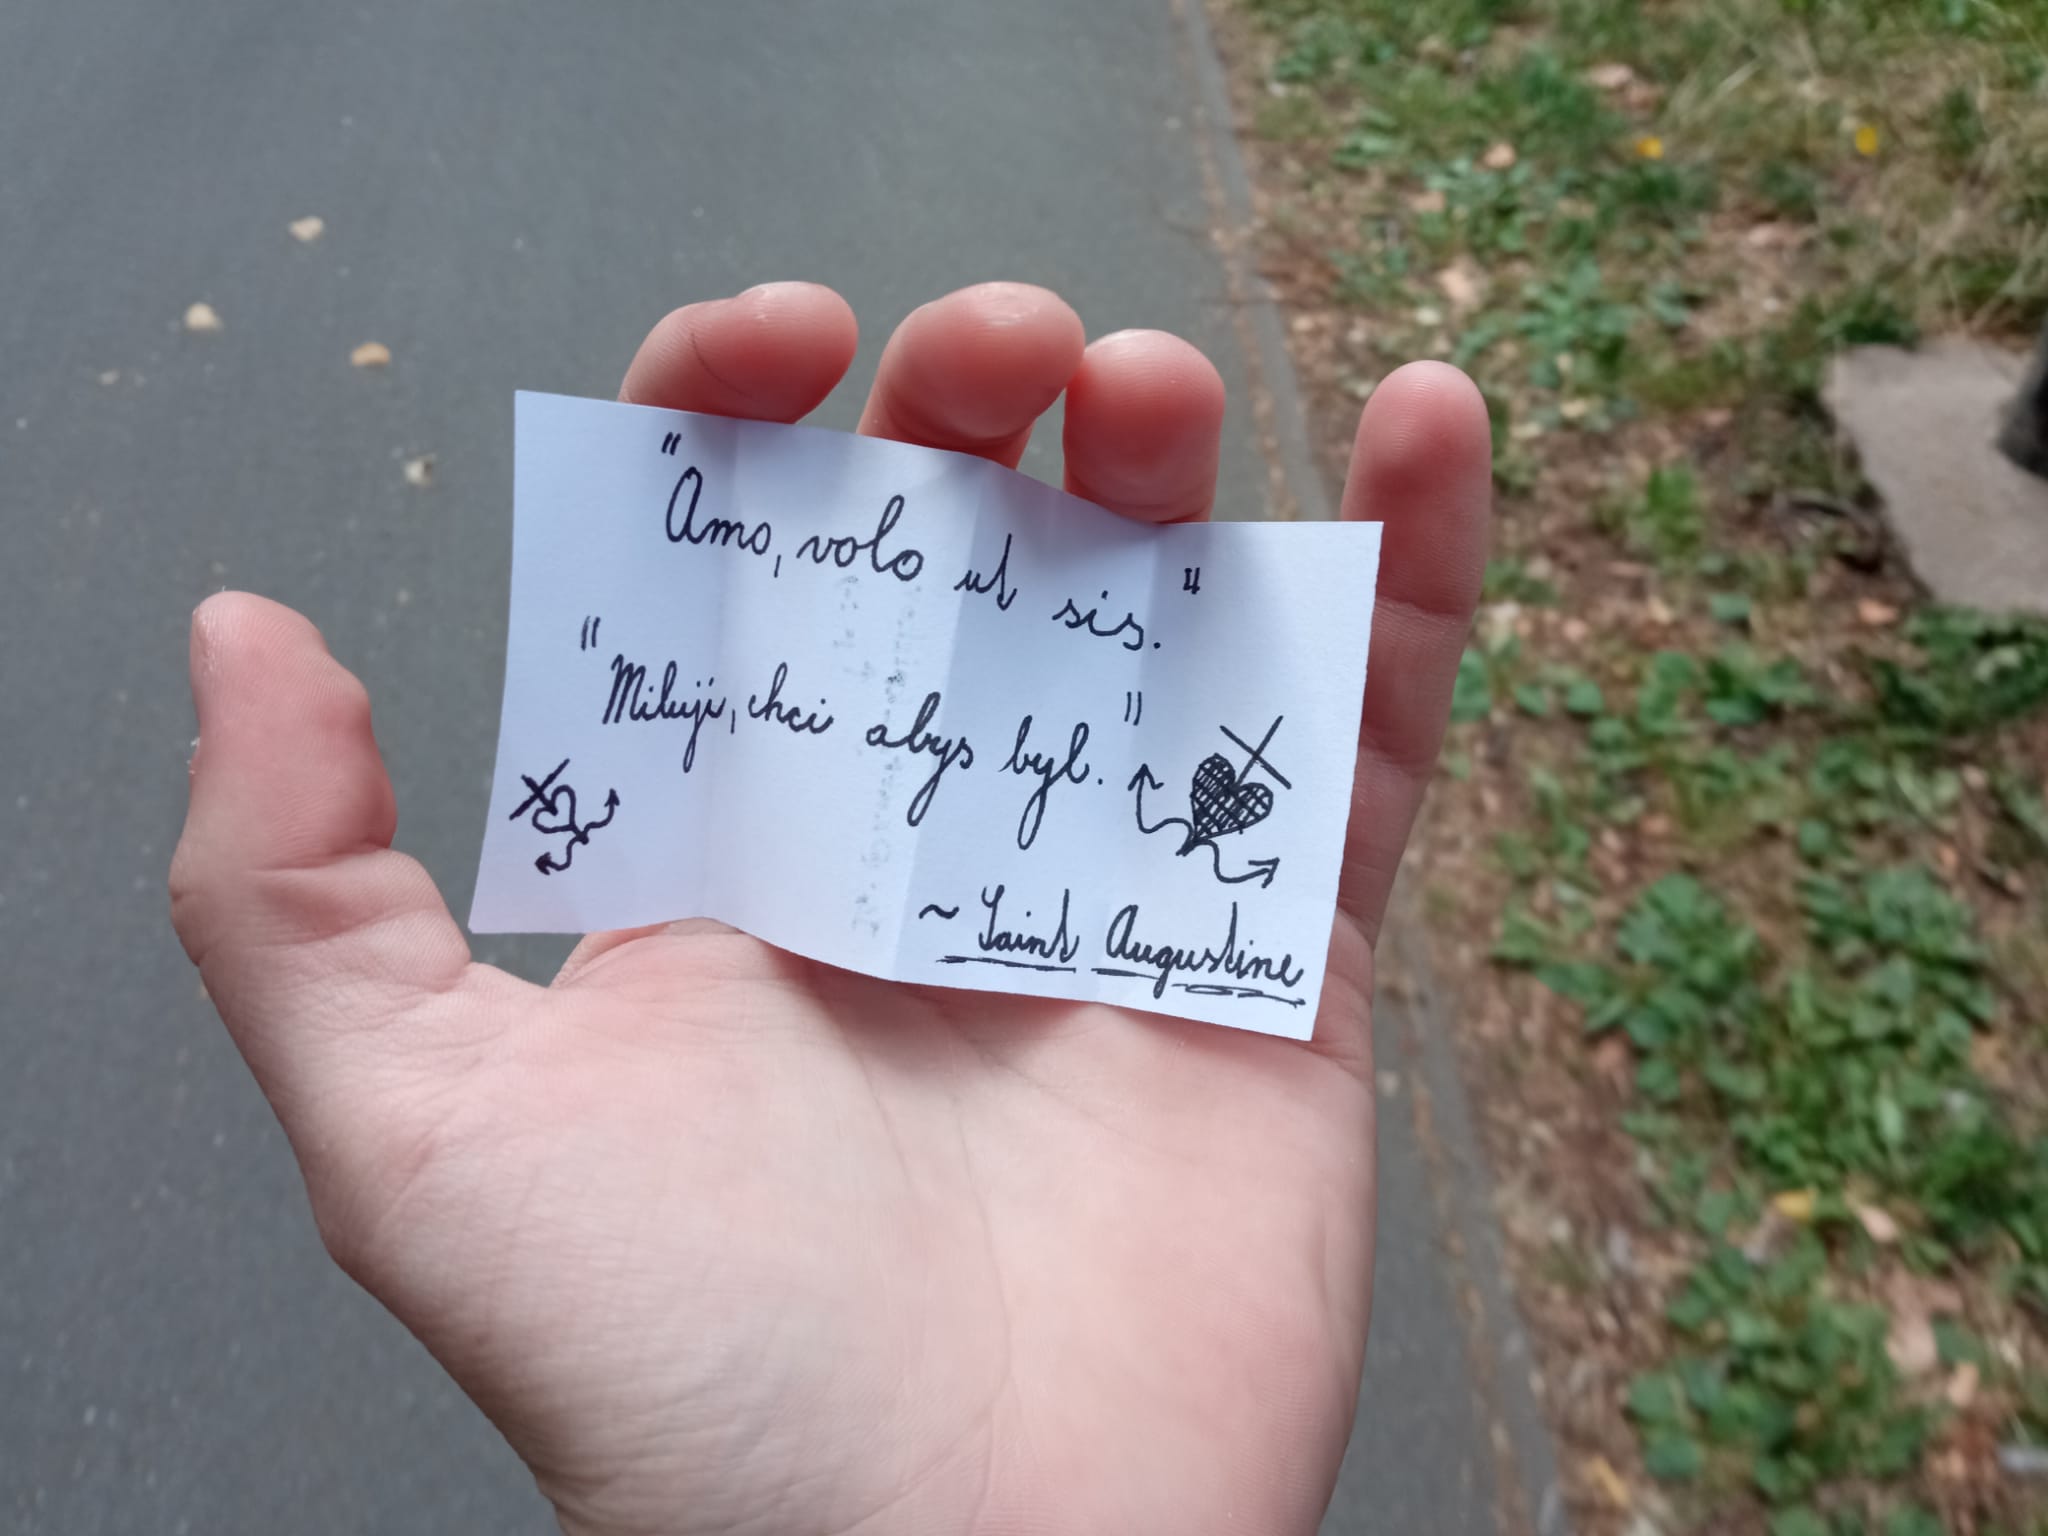 "Amo, volo ut sis."
"Miluji, chci abys byl."
~ Saint Augustine